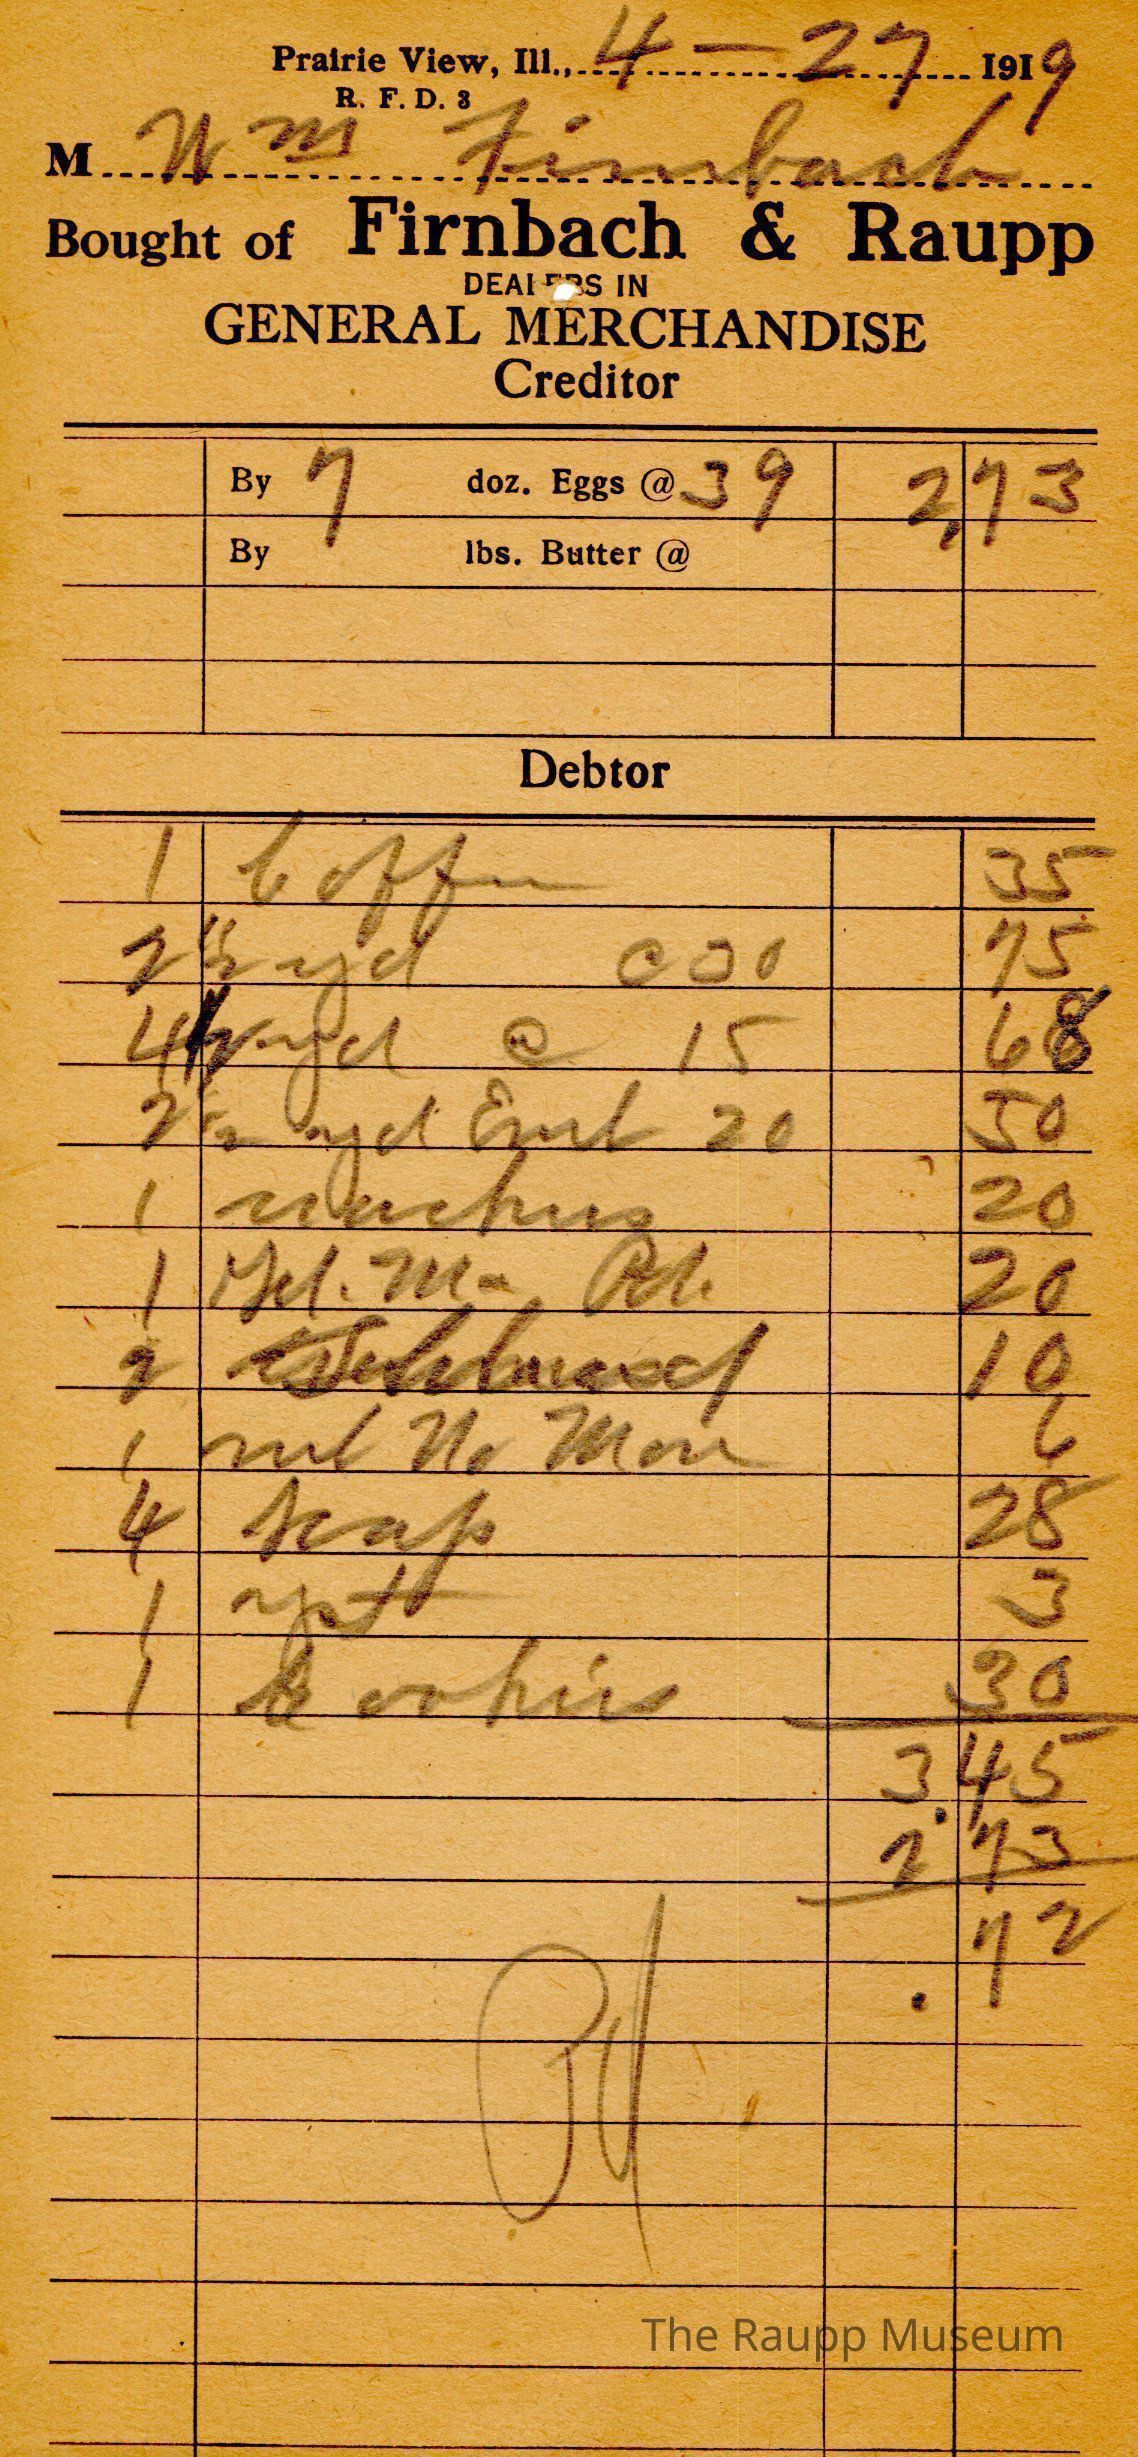 Prairie View, Ill., 4-27 1919
R. F. D. 3
M Wm Firnbach
Bought of Firnbach & Raupp
DEALERS IN
GENERAL MERCHANDISE
Creditor
By 7 doz. Eggs @ 39 2,73
By lbs. Butter @
Debtor
1 Coffee 35
2 1/2 yd @ 30 75
4 1/2 yd @ 15 68
2 1/2 yd 20 50
1 20
1 20
2 10
1 6
4 soap 28
1 yst 3
1 Cookies 30
3.45
2 73
.72
Pd
The Raupp Museum